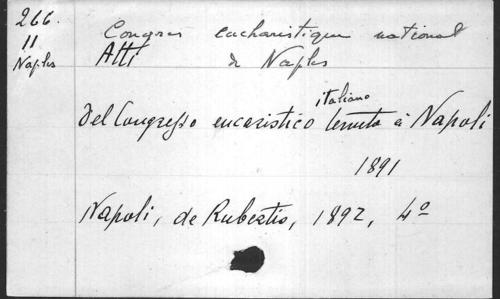 266.
11
Naples
Congrès eucharistique national
Atti de Naples
italiano
Del Congresso eucaristico tenuto à Napoli
1891
Napoli, de Rubertis, 1892, 4º